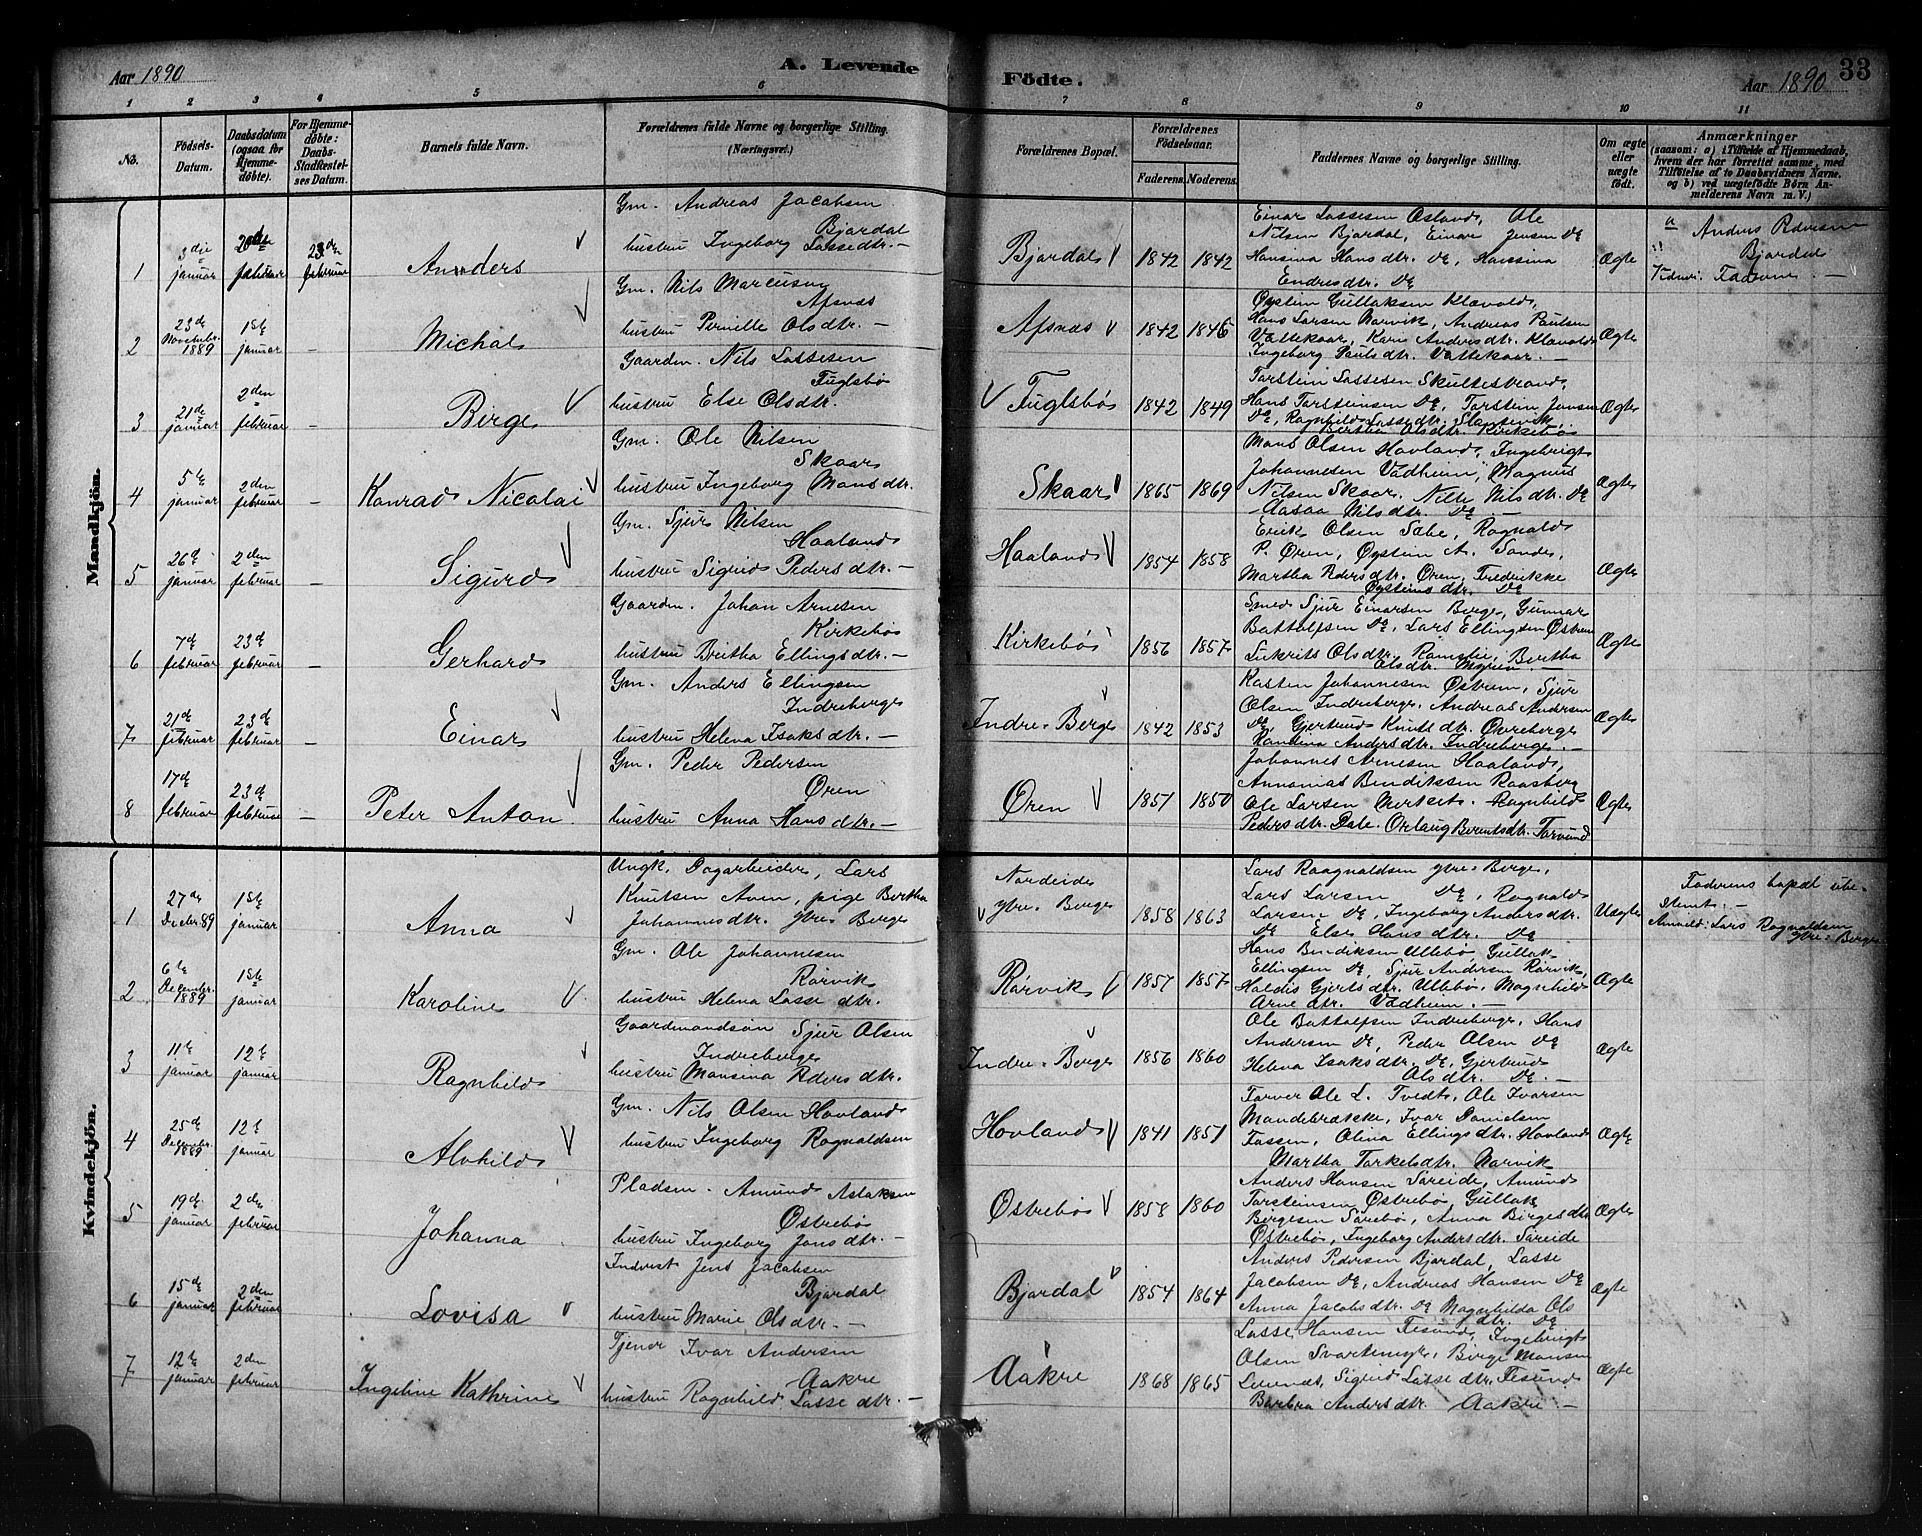 Aar 1890
A. Levende
Födte.
Aar 1890
33
1 2 3 4 5 6 7 8 9 10 11
No.
Födsels-Datum.
Daabsdatum (ogsaa for Hjemme-döbte).
For Hjemme-döbte: Daabs-Stadfæstel-ses Datum.
Barnets fulde Navn.
Forældrenes fulde Navne og borgerlige Stilling.
(Næringsvei.)
Forældrenes Bopæl.
Forældrenes Födselsaar.
Faderens. Moderens.
Faddernes Navne og borgerlige Stilling.
Om ægte eller uægte födt.
Anmærkninger
(saasom: a) i Tilfælde af Hjemmedaab,
hvem der har forrettet samme, med
Tilföielse af to Daabsvidners Navne.
og b) ved uægtefödte Börn An-
melderens Navn m. V.)
Mandkjön.
1 3die januar 23de februar Anders
Gm. Andreas Jacobsen
Bjordal
hustru Ingeborg Lassedtr. —
Bjordal 1842 1842
Einar Lassesen Osland, Ole
Nilsen Bjordal, Einar Jensen De
Hansina Hansdtr. De, Hansina
Endresdtr. De
Ægte
a Anders
Bjordal
2 23de Novembr. 1889 1ste januar — Michal
Gm. Nils Marcusen
Afsnæs
hustru Pernille Olsdtr. —
Afsnæs 1842 1846
Øystein Gullaksen Klævold,
Hans Larsen Narvik, Andreas Paulsen
Vattekaar, Kari Andersdtr. Klævold
Ingeborg Paulsdtr. Vattekaar. —
Ægte
3 21de januar 2den februar — Birge
Gaardm. Nils Lassesen
Fuglsbø
hustru Else Olsdtr.
Fuglsbø 1842 1849
Torstein Lassesen Skultestrand,
Hans Torsteinsen De, Torstein Jensen
De, Ragnhild Lassedtr.
Bertha Olsdtr. Kirkebø
Ægte
4 5te januar 2den februar — Konrad Nicolai
Gm. Ole Nilsen
Skaar
hustru Ingeborg Monsdtr.
Skaar 1865 1869
Mons Olsen Hovland, Ingebrigt
Johannesen Vadheim, Magnus
Nilsen Skaar. Nille Nilsdtr. De
Aasaa Nilsdtr. De. —
Ægte
5 26de januar 2den februar — Sigurd
Gm. Sjur Nilsen
Haaland
hustru Sigrid Pedersdtr. —
Haaland 1854 1858
Erik Olsen Sæbe, Rognald
P. Øren, Øystein A. Sande,
Martha Pdersdtr. Øren, Frederikke
Øysteinsdtr. De
Ægte
6 7de februar 23de februar — Gerhard
Gaardm. Johan Arnesen
Kirkebø
hustru Britha Ellingsdtr. —
Kirkebø 1856 1857
Smed Sjur Einarsen Berge, Gunnar
Battolfsen De, Lars Ellingsen Østrem
Lukrits Olsdtr. Bertha
Elsdtr. Myren —
Ægte
7 21de februar 23de februar — Einar
Gm. Anders Ellingsen
Indreberge
hustru Helena Isaksdtr. —
Indre-Berge 1842 1853
Kasten Johannesen Østrem, Sjur
Olsen Indreberge. Andreas Andersen
De, Gjertrud Knutsdtr. Øvreberge
Andersdtr. Indreberge. —
Ægte
8 17de februar 23de februar — Peter Anton
Gm. Peder Pedersen
Øren
hustru Anna Hansdtr. —
Øren 1851 1850
Johannes Arnesen Haaland,
Annanias Bendiktsen Raasberg
Ole Larsen Ragnhild
Pedersdtr. Dale. Orlaug Berentsdtr. Torvund
Ægte
Kvindekjön.
1 27de Decbr 89 1ste januar Anna
Ungk. Dagarbeider, Lars
Knutsen Aven, pige Bertha
Johannesdtr. Ytre-Berge
Nordeide
Ytre-Berge 1858 1863
Lars Raagnaldsen Ytre-Berge,
Lars Larsen De, Rognald
Larsen De, Ingeborg Andersdtr.
De Else Hansdtr. De
Uægte
Faderens bopæl ube-
stemt. —
Anmeld: Lars Rognaldsen
Ytre-Berge
2 6te Decembr. 1889 1ste januar Karoline
Gm. Ole Johannesen
Rørvik
hustru Helena Lassedtr.
Rørvik 1857 1857
Hans Bendiksen Ullebø, Gullak
Ellingsen De, Sjur Andersen Rørvik,
Haldis Gjertsdtr. Ullebø, Magnhild
Arnedtr. Vadheim. —
Ægte
3 11te januar 12te januar Ragnhild
Gaardmandsøn Sjur Olsen
Indreberge
hustru Monsina Pdersdtr.
Indre-Berge 1856 1860
Ole Battolfsen Indreberge, Hans
Andersen De, Peder Olsen De
Helena Isaksdtr. De, Gjertrud
Olsdtr. De. —
Ægte
4 25de Decembr. 1889 12te januar Alvhild
Gm. Nils Olsen Hovland
hustru Ingeborg Rognaldsen
Hovland 1841 1851
Farver Ole L. Tvedt, Ole Ivarsen
Mandebrække, Ivar Danielsen
Fossen, Olina Ellingsdtr. Hovland
Martha Torkelsdtr. Narvik
Ægte
5 19de januar 2den februar Johanna
Pladsm. Amund Aslaksen
Østrebø
hustru Ingeborg Jonsdtr. —
Østrebø 1858 1860
Anders Hansen Søreide, Amund
Torsteinsen Østrebø, Gullak
Birgesen Sørebø, Anna Birgesdtr
Østrebø, Ingeborg Andersdtr. Søreide
Ægte
6 15de januar 2den februar Lovisa
Inderst Jens Jacobsen
Bjordal
hustru Marie Olsdtr. —
Bjordal 1854 1864
Anders Pedersen Bjordal, Lasse
Jacobsen De, Andreas Hansen De
Anna Jacobsdtr. De Magnhilda Ols
dtr. De
Ægte
7 12te januar 2den februar Ingeline Kathrine
Tjener Ivar Andersen
Aakre
hustru Ragnhild Lassedtr. —
Aakre 1868 1865
Lasse Hansen Tesund, Ingebrigt
Olsen Svartemyr, Birge Monsen
Sigrid Lassedtr. Tesund
Barbra Andersdtr. Aakre —
Ægte